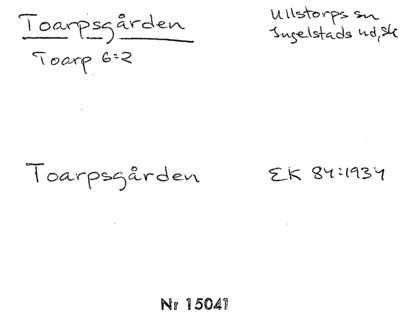 Toarpsgården
Toarp 6:2
Ullstorps sn
Ingelstads hd, Sk
Toarpsgården
EK 84:1934
Nr 15041